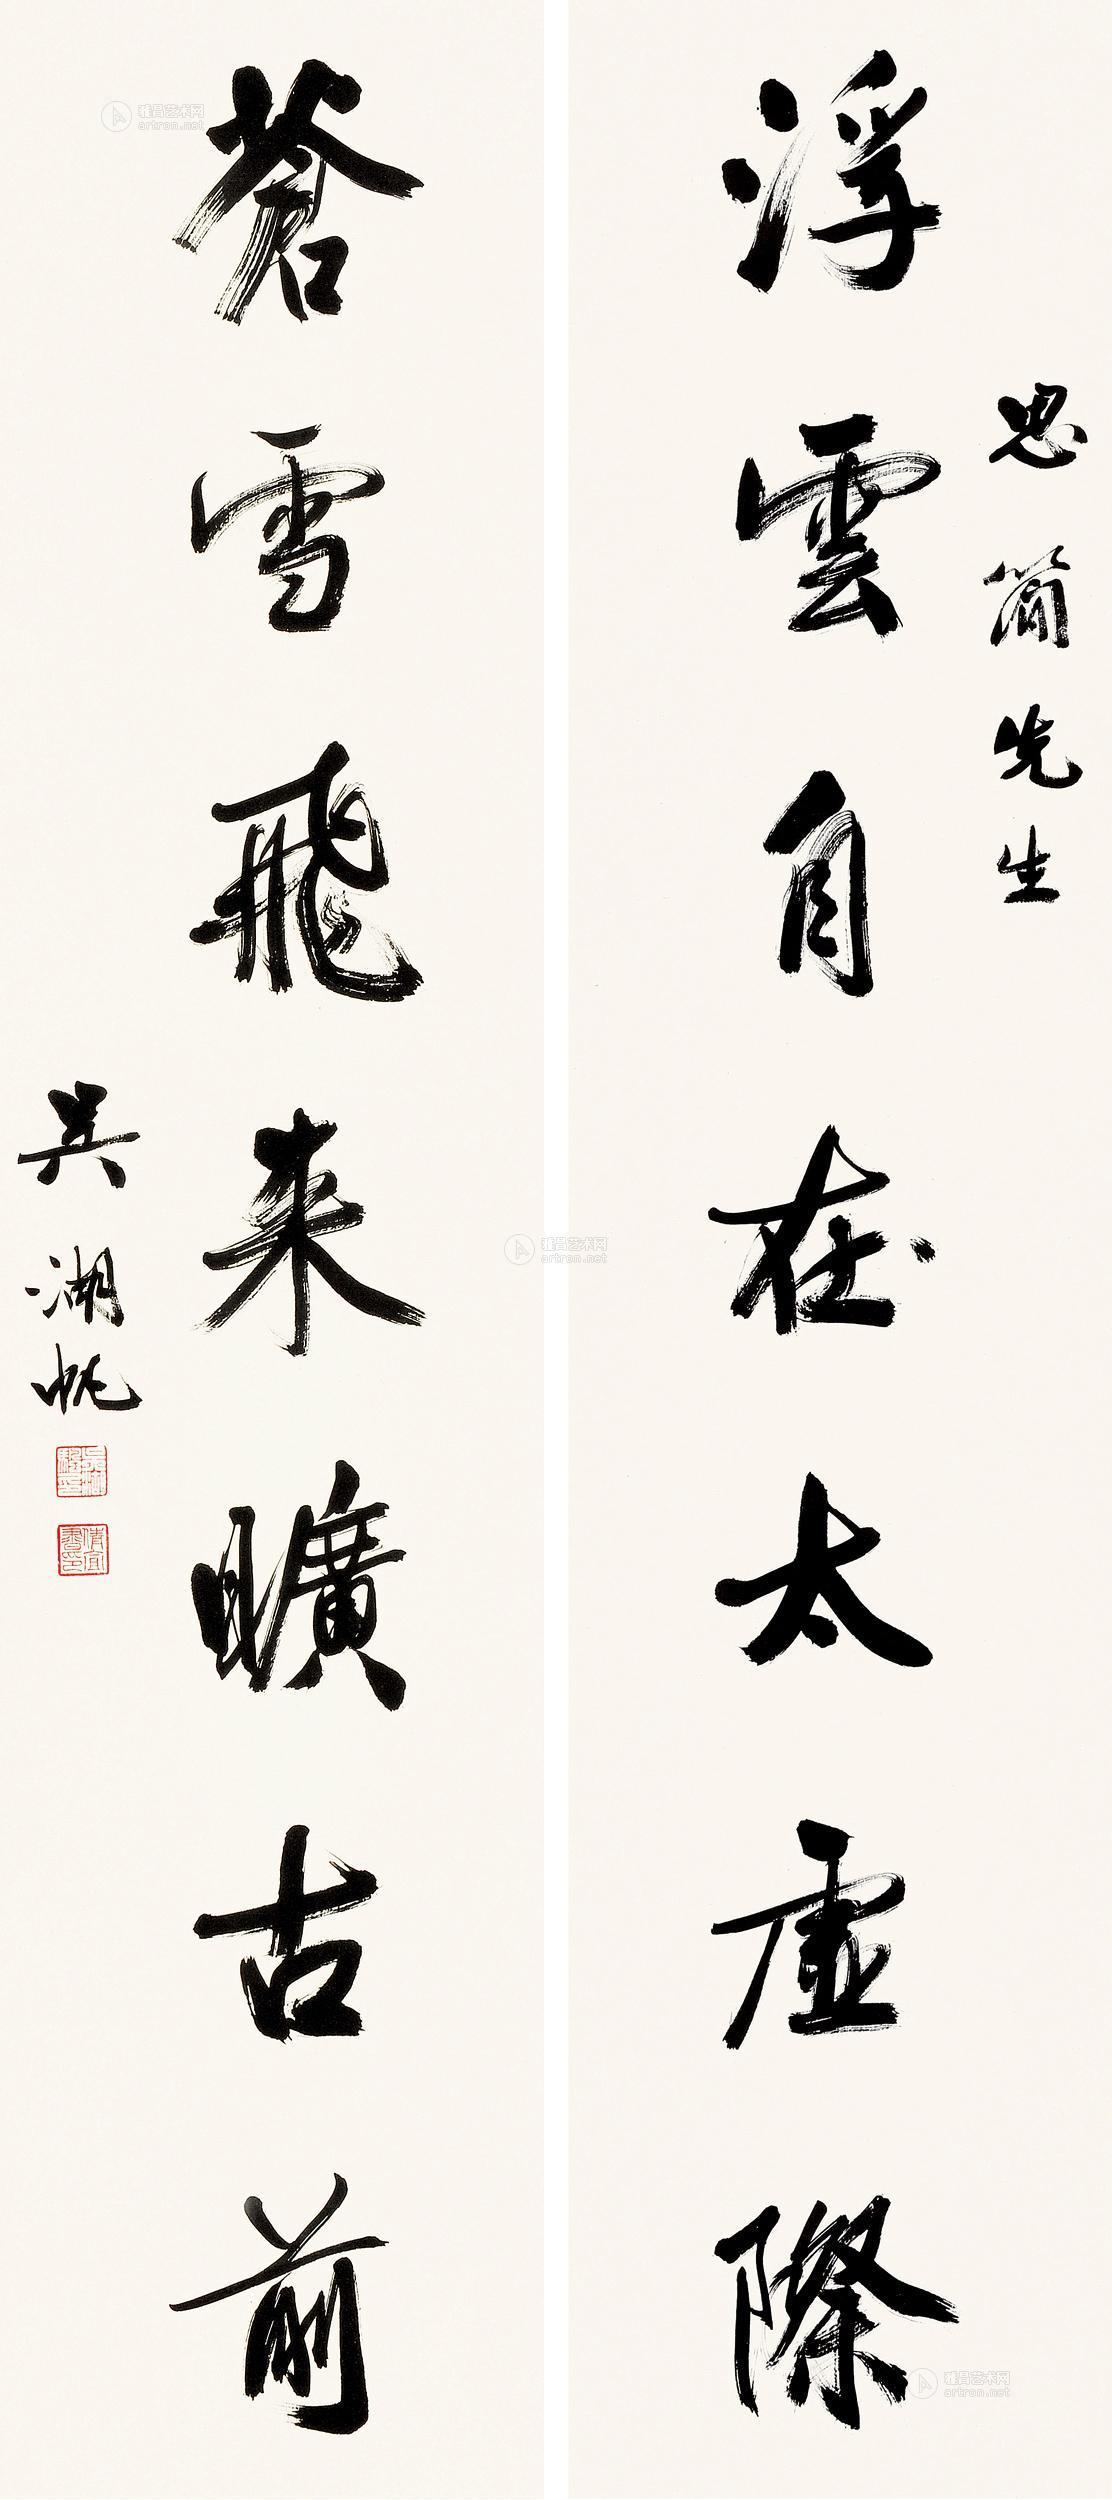 思簡先生
浮雲自在太虛際
蒼雪飛来曠古前
吳湖帆
雅昌艺术网
artron.net
雅昌艺术网
artron.net
雅昌艺术网
artron.net